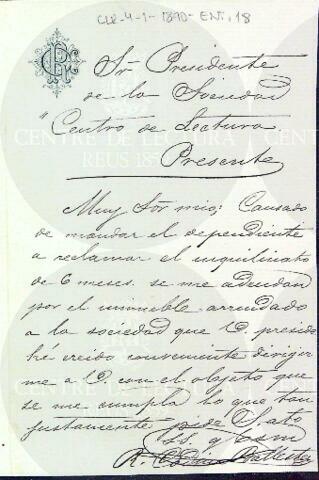 CLR-4-1-1890-ENT.18
Sr. Presidente
de la Sociedad
"Centro de Lectura
Presente
Muy Sor mio; Cansado
de mandar el dependiente
a reclamar el inquilinato
de 6 meses se me adeudan
por el inmueble arrendado
a la sociedad que V. preside
hé creido conveniente dirigir
me a V. con el objeto que
se me cumpla lo que tan
justamente pide S. ato
S.S. q b s m
CENTRE DE LECTURA
REUS 1859